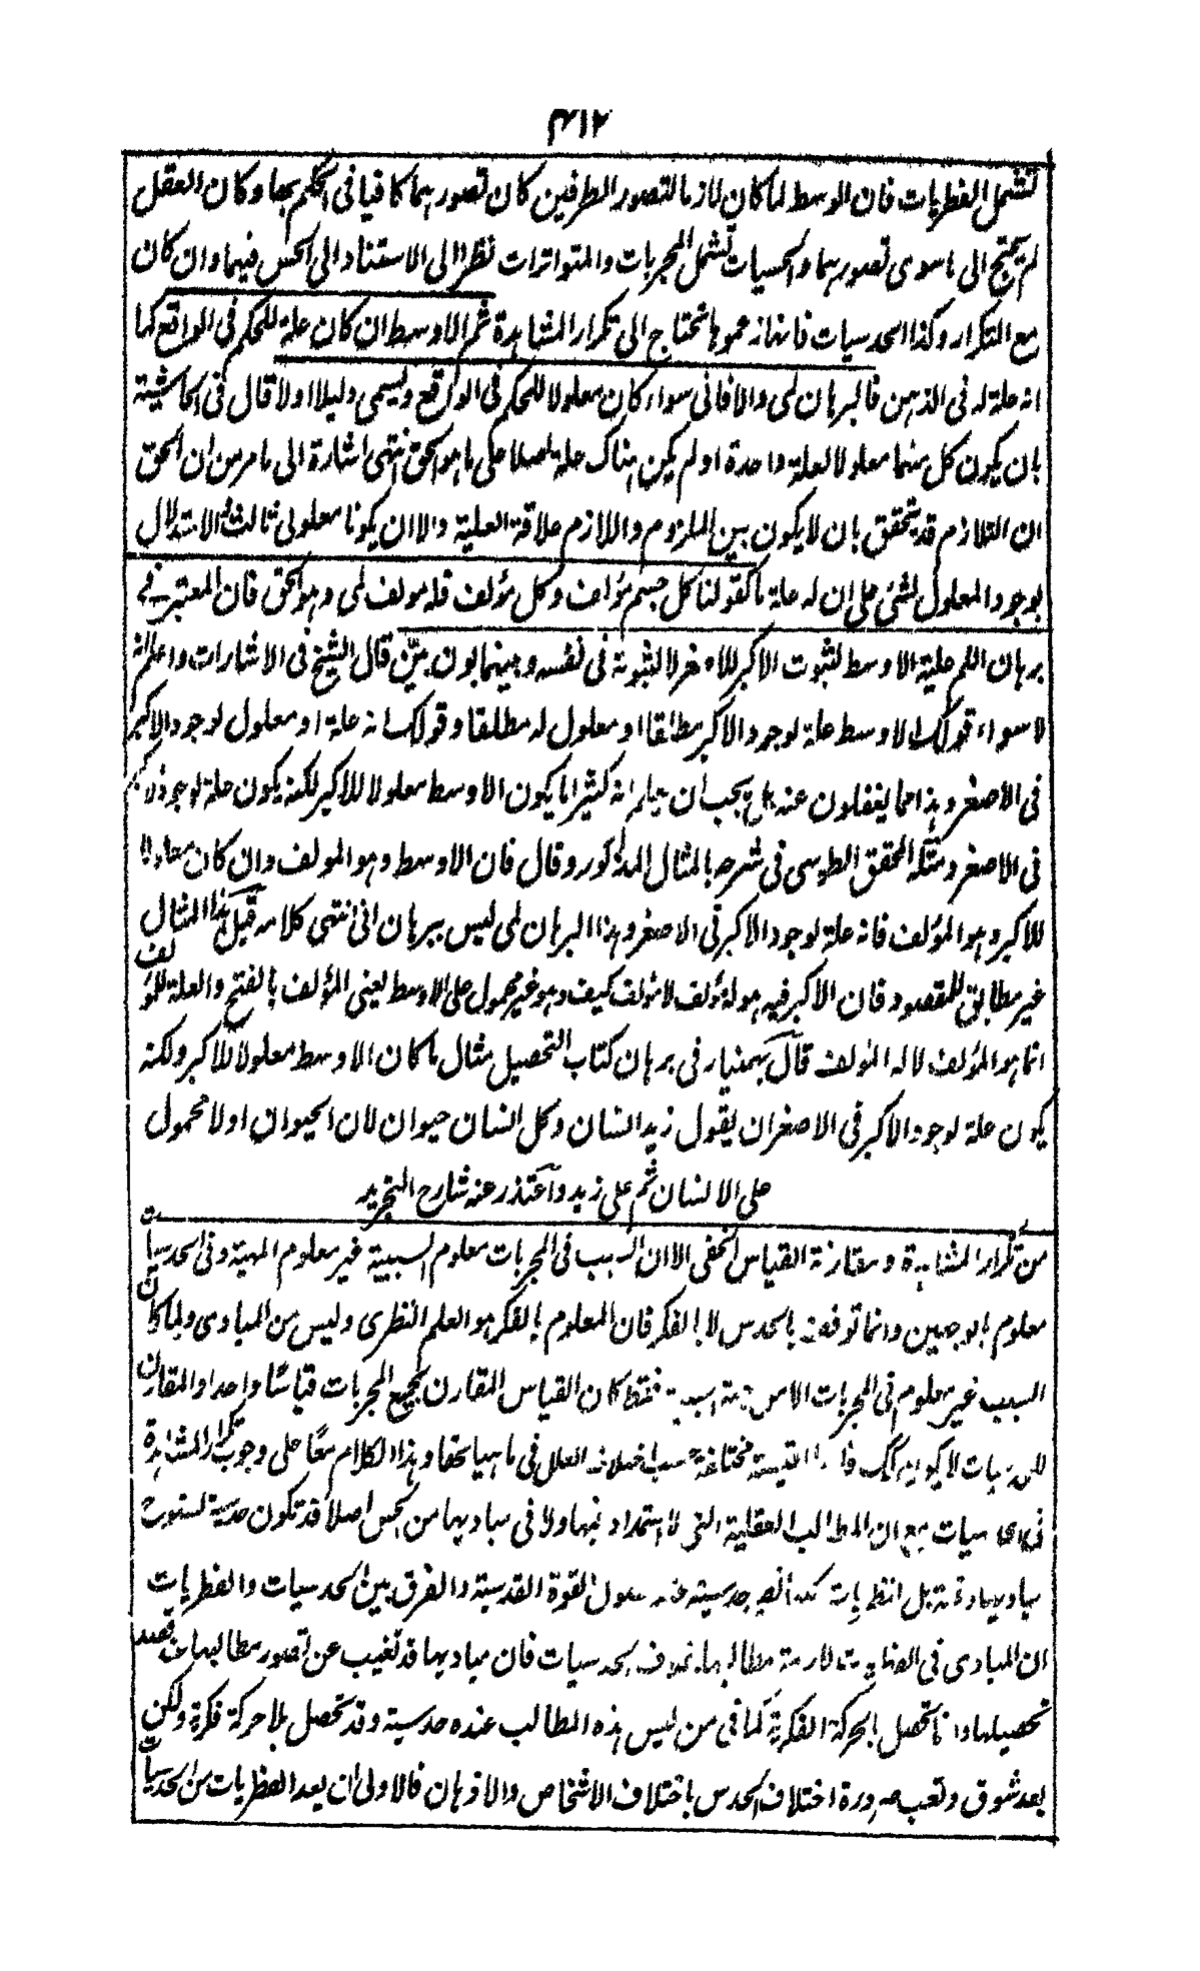 ٤١٢
لتشمل الفطريات فان الوسط لما كان لازما لتصور الطرفين كان تصورهما كافيا فى الحكم بها وكان العقل
لم يحتج الى ما سوى تصورهما والحسيات تشمل المجربات والمتواترات نظرا الى الاستناد الى الحس فيهما وان كان
مع التكرار وكذا الحدسيات فانها زعموها تحتاج الى تكرار المشاهدة ثم الاوسط ان كان علة للحكم فى الواقع كما
انه علة له فى الذهن فالبرهان لمى والا فانى سواء كان معلولا للحكم فى الواقع ويسمى دليلا او لا قال فى الحاشية
بان يكون كل منهما معلولا لعلة واحدة او لم يكن هناك علة اصلا على ما هو الحق انتهى اشارة الى ما مر من ان الحق
ان التلازم قد يتحقق بان لا يكون بين الملزوم واللازم علاقة العلية والا ان يكونا معلولى ثالث الاستدلال
بوجود المعلول لشئ على ان له علة ما كقولنا كل جسم مؤلف وكل مؤلف فله مولف لمى وهو الحق فان المعتبر فى
برهان اللم علية الاوسط لثبوت الاكبر للاصغر لا لثبوته فى نفسه وبينهما بون بيّن قال الشيخ فى الاشارات واعلم انه
لا سواء قولك الاوسط علة لوجود الاكبر مطلقا او معلول له مطلقا وقولك انه علة او معلول لوجود الاكبر
فى الاصغر وهذا مما يغفلون عنه بل يجب ان يعلم انه كثيرا ما يكون الاوسط معلولا للاكبر لكنه يكون علة لوجود الاكبر
فى الاصغر ومثله المحقق الطوسى فى شرحه بالمثال المذكور وقال فان الاوسط وهو المولف وان كان معلولا
للاكبر وهو المؤلف فانه علة لوجود الاكبر فى الاصغر وهذا البرهان لمى ليس ببرهان انى انتهى كلامه قيل هذا المثال
غير مطابق للمقصود فان الاكبر فيه هو له مؤلف لا مؤلف كيف وهو غير محمول على الاوسط يعنى المؤلف بالفتح والعلة للمؤلف
انما هو المؤلف لا له المؤلف قال بهمنيار فى برهان كتاب التحصيل مثال ما كان الاوسط معلولا للاكبر ولكنه
يكون علة لوجود الاكبر فى الاصغر ان يقول زيد انسان وكل انسان حيوان لان الحيوان اولا محمول
على الانسان ثم على زيد واعتذر عنه شارح التجريد
من تكرار المشاهدة ومقارنة القياس الخفى الا ان السبب فى المجربات معلوم السببية غير معلوم المهية وفى الحدسيات
معلوم بالوجهين وانما توقفه بالحدس لا بالفكر فان المعلوم بالفكر هو العلم النظرى وليس من المبادى ولما كان
السبب غير معلوم فى المجربات الا من جهة السببية فقط كان القياس المقارن لجميع المجربات قياسا واحدا والمقارن
للحدسيات لا يكون كذلك فانها اقيسة مختلفة حسب اختلاف العلل فى ماهياتها وهذا الكلام معًا على وجوب تكرار المشاهدة
فى الحدسيات مع ان المطالب العقلية التى لا استمداد فيها ولا فى مباديها من الحس اصلا قد تكون حدسية لسنوح
مباديها دفعة بل النظريات كلها حدسية عند حصول القوة القدسية والفرق بين الحدسيات والفطريات
ان المبادى فى الفطريات لازمة مطالبها بخلاف الحدسيات فان مباديها قد تغيب عن تصور مطالبها
تحصيلها وانما تحصل بالحركة الفكرية كما فى من ليس هذه المطالب عنده حدسية وقد تحصل بلا حركة فكرية ولكن
بعد شوق وتعب ضرورة اختلاف الحدس باختلاف الاشخاص والاذهان فالاولى ان يعد الفطريات من الحدسيات